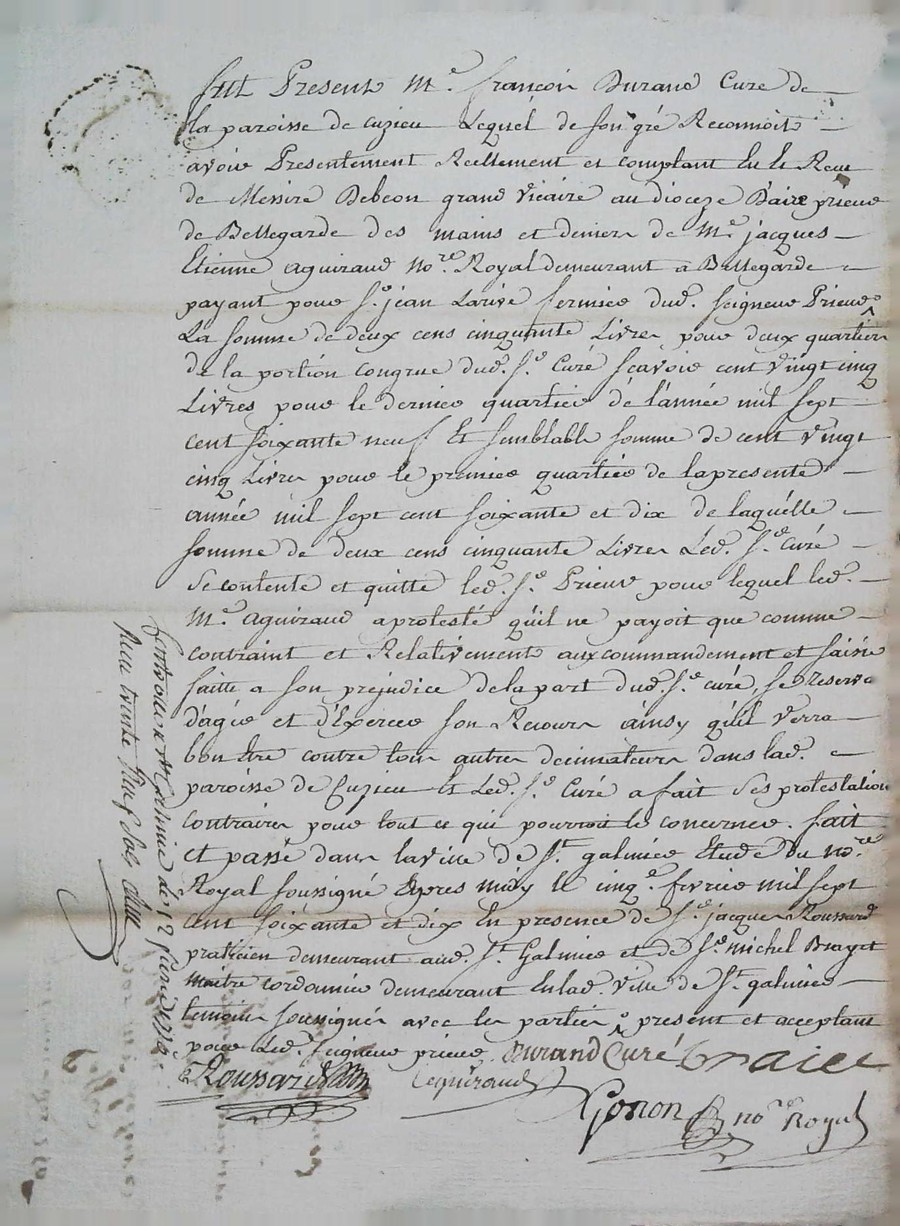 fut Present Me. françois Durand Curé de
la paroisse de cuzieu Lequel de son gré Reconnoit
avoir Presentement Reellement et comptant Eu et Receu
de Messire Debeon grand vicaire au dioceze D'aire prieur
de Bellegarde des mains et deniers de Me. jacques
Etienne aguiraud nore. Royal demeurant a Bellegarde
payant pour Sr. jean Larive fermier dud. Seigneur Prieur
La somme de deux cens cinquante Livres pour deux quartiers
de la portion congrue dud. Sr. Curé Scavoir cent vingt cinq
Livres pour le dernier quartier de l'année mil sept
cent soixante neuf Et semblable somme de cent vingt
cinq Livres pour le premier quartier de la presente
année mil sept cent soixante et dix de laquelle
somme de deux cens cinquante Livres Led. Sr. Curé
se contente et quitte led. Sr. Prieur pour lequel led.
Me. aguiraud a protesté qu'il ne payoit que comme
contraint et Relativement aux commandement et saisie
faitte a son prejudice de la part dud. Sr. curé, se reserve
d'agir et d'Exercer son Recours ainsy qu'il verra
bon être contre tous autres decimateurs dans lad.
paroisse de Cuzieu Et Led. Sr. Curé a fait ses protestations
contraires pour tout ce qui pourroit le concerner. fait
et passé dans la ville de St. galmier Etude du nore.
Royal soussigné apres midy le cinqe. fevrier mil sept
cent soixante et dix En presence de Sr. jacques Roussard
praticien demeurant aud. St. Galmier et de Sr. michel Brayet
maitre cordonnier demeurant En lad. ville de St. galmier
temoins soussignés avec les parties present et acceptant
pour Led. Seigneur prieur. Durand Curé Braiet
Roussard aguiraud
Gonon nore Royal
Controllé a St. Galmier le 12 fevrier 1770
Receu treinte neuf sols